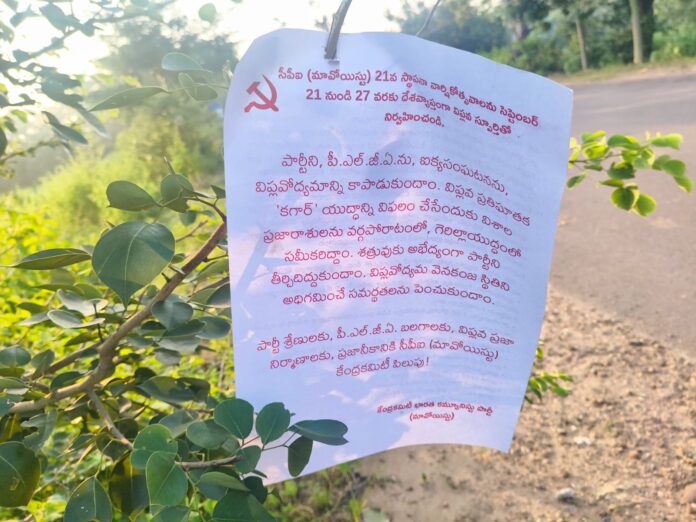 సీపీఐ (మావోయిస్టు) 21వ స్థాపనా వార్షికోత్సవాలను సెప్టెంబర్
21 నుండి 27 వరకు దేశవ్యాప్తంగా విప్లవ స్ఫూర్తితో
నిర్వహించండి.
పార్టీని, పీ.ఎల్.జీ.ఏ.ను, ఐక్యసంఘటనను,
విప్లవోద్యమాన్ని కాపాడుకుందాం. విప్లవ ప్రతిఘాతక
'కగార్' యుద్ధాన్ని విఫలం చేసేందుకు విశాల
ప్రజారాశులను వర్గపోరాటంలో, గెరిల్లాయుద్ధంలో
సమీకరిద్దాం. శత్రువుకు అభేద్యంగా పార్టీని
తీర్చిదిద్దుకుందాం. విప్లవోద్యమ వెనకంజ స్థితిని
అధిగమించే సమర్థతలను పెంచుకుందాం.
పార్టీ శ్రేణులకు, పీ.ఎల్.జీ.ఏ. బలగాలకు, విప్లవ ప్రజా
నిర్మాణాలకు, ప్రజానీకానికి సీపీఐ (మావోయిస్టు)
కేంద్రకమిటీ పిలుపు!
కేంద్రకమిటీ భారత కమ్యూనిస్టు పార్టీ
(మావోయిస్టు)